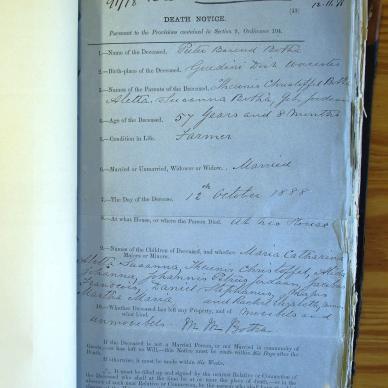 (43)
DEATH NOTICE.
Pursuant to the Provisions contained in Section 9, Ordinance 104.
1.—Name of the Deceased, Pieter Barend Botha
2.—Birth-place of the Deceased, Goudini Dist Worcester
3.—Names of the Parents of the Deceased, Theunis Christoffel Botha
Aletta Susanna Botha, geb Jordaan
4.—Age of the Deceased, 57 Years and 8 Months
5.—Condition in Life, Farmer
6.—Married or Unmarried, Widower or Widow, Married
7.—The Day of the Decease, 12th October 1888
8.—At what House, or where the Person Died, at his House
9.—Names of the Children of Deceased, and whether Majors or Minors. Maria Catharina
Aletta Susanna, Theunis Christoffel,
Johanna, Johannis Petrus Jordaan, Jacobus
Francois, Daniel Stephanus,
Martha Maria and Rachel Elizabeth,
10.—Whether Deceased has left any Property, and of what kind, moveables and
immovables. Botha
If the Deceased is not a Married Person, or not Married in community of
Goods, or has left no Will,—this Notice must be made within Six Days after the
Death.
If otherwise, it must be made within Six Weeks.
It must be filled up and signed by the nearest Relative or Connection of
the Deceased who shall at the time be at or near the place of death,—or in the